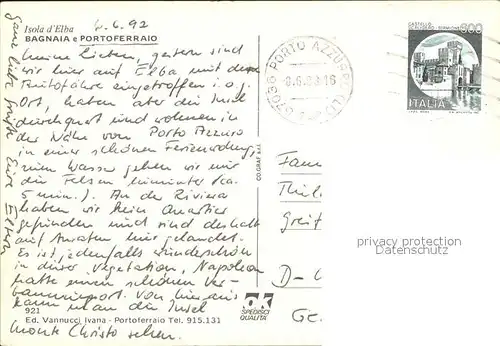 Isola d'Elba
6.6.92
BAGNAIA e PORTOFERRAIO
Meine Lieben, gestern sind
wir hier auf Elba mit der
Autofähre eingetroffen i. o. g.
Ort, haben aber die Insel
durchquert und wohnen in
der Nähe von Porto Azzuro
in einer schönen Ferienwohnung,
zum Wasser gehen wir nur
die Felsen hinunter (ca.
5 min.). An der Riviera
haben wir kein Quartier
gefunden und sind deshalb
auf hier gelandet.
Es ist jedenfalls wunderschön
in dieser Vegetation, Napoleon
hatte einen schönen Ver-
bannungsort. Von hier aus
kann man die Insel
Monte Christo sehen.
Ganz liebe Grüße Eure Eltern
921
Ed. Vannucci Ivana - Portoferraio Tel. 915.131
CO.GRAF s.r.l.
SPEDISCI
QUALITÀ
57036 PORTO AZZURRO (LI)
CASTELLO
800
ITALIA
Fam
Thil
Greif
D-
Ge
privacy protection
Datenschutz